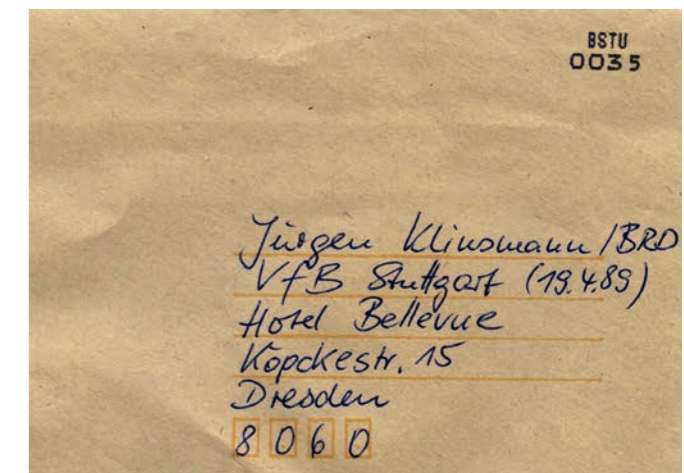 BSTU
0035
Jürgen Klinsmann / BRD
VfB Stuttgart (19.4.89)
Hotel Bellevue
Köpckestr. 15
Dresden
8060